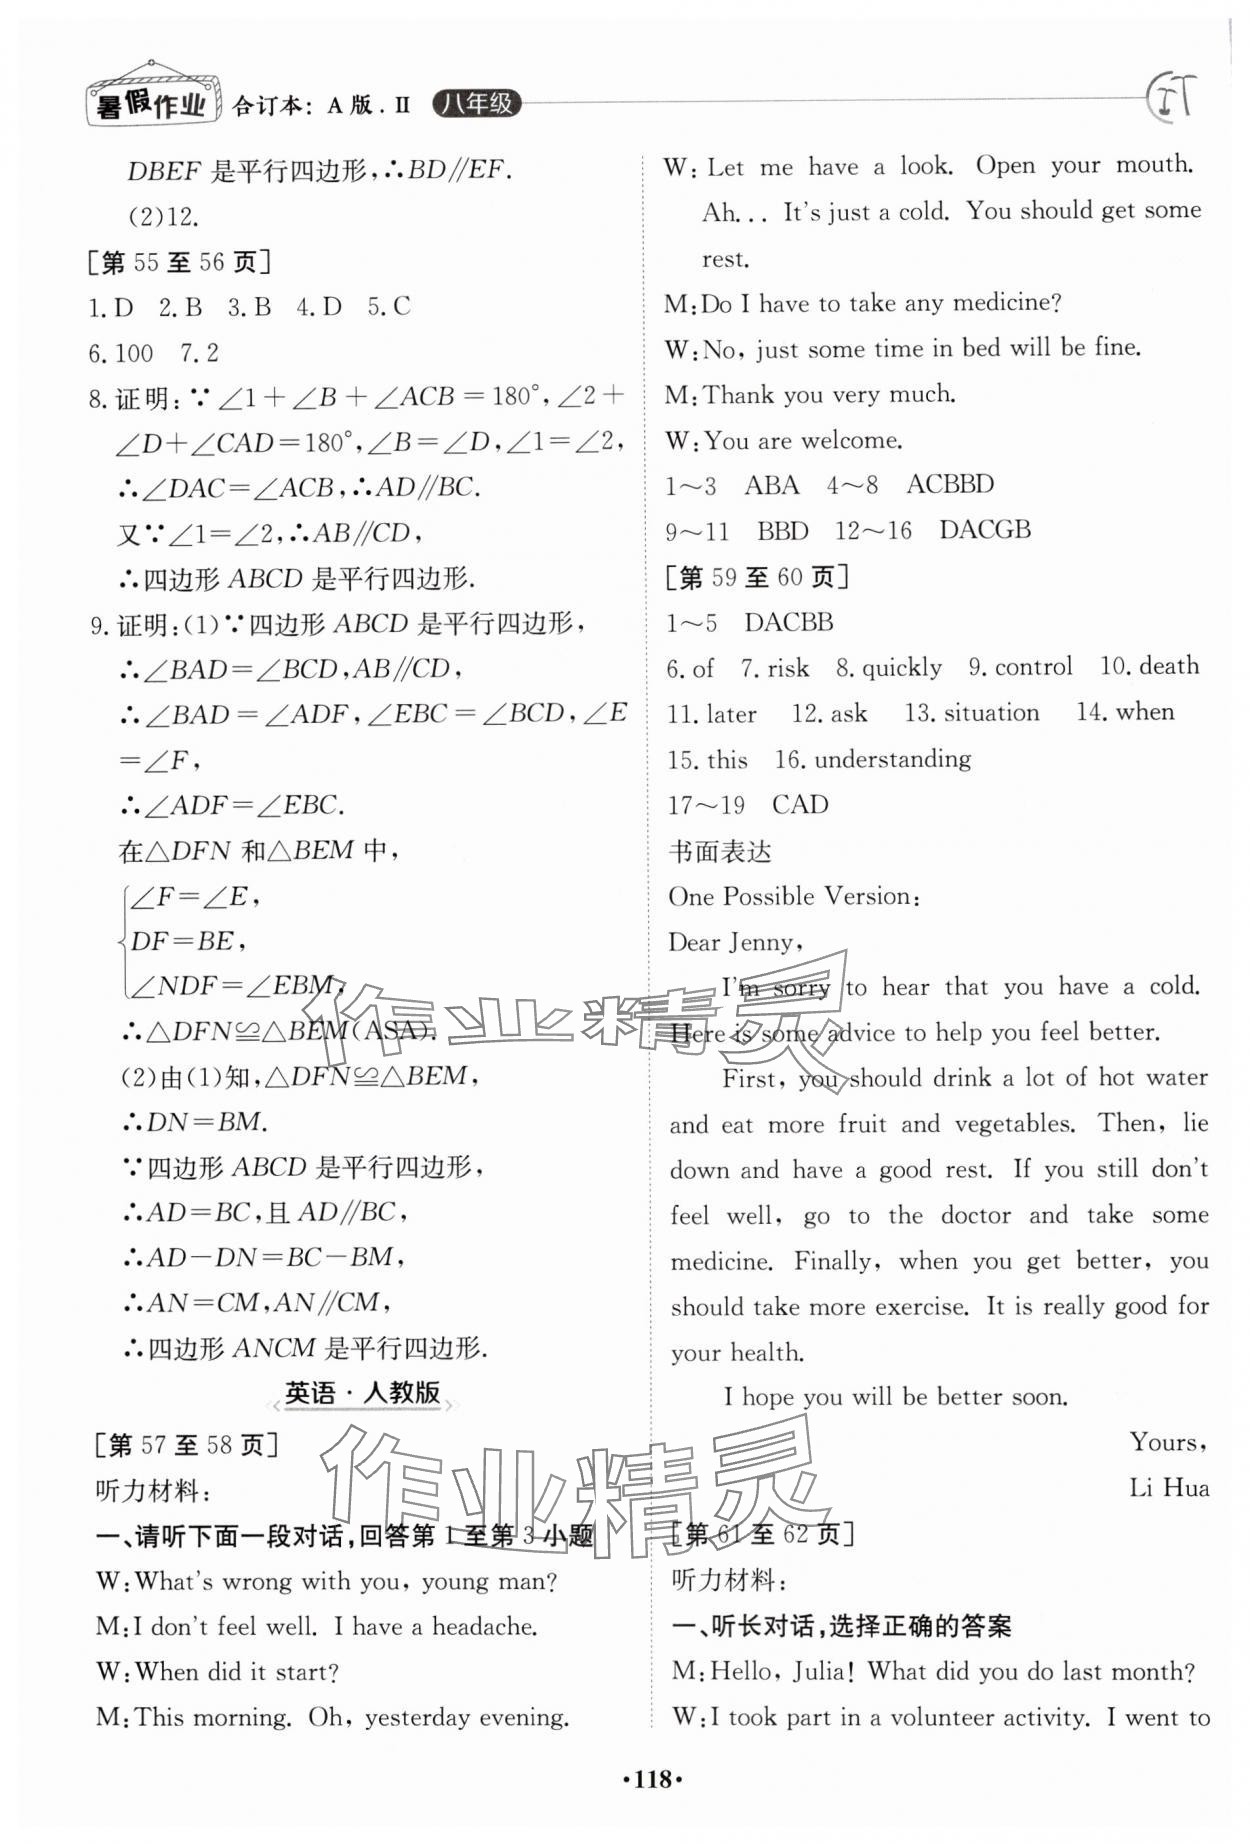 暑假作业 合订本：A版.Ⅱ 八年级
DBEF 是平行四边形,∴BD∥EF.
(2)12.
[第 55 至 56 页]
1.D 2.B 3.B 4.D 5.C
6.100 7.2
8.证明:∵∠1+∠B+∠ACB=180°,∠2+
∠D+∠CAD=180°,∠B=∠D,∠1=∠2,
∴∠DAC=∠ACB,∴AD∥BC.
又∵∠1=∠2,∴AB∥CD,
∴四边形 ABCD 是平行四边形.
9.证明:(1)∵四边形 ABCD 是平行四边形,
∴∠BAD=∠BCD,AB∥CD,
∴∠BAD=∠ADF,∠EBC=∠BCD,∠E
=∠F,
∴∠ADF=∠EBC.
在△DFN 和△BEM 中,
∠F=∠E,
DF=BE,
∠NDF=∠EBM,
∴△DFN≌△BEM(ASA).
(2)由(1)知,△DFN≌△BEM,
∴DN=BM.
∵四边形 ABCD 是平行四边形,
∴AD=BC,且 AD∥BC,
∴AD-DN=BC-BM,
∴AN=CM,AN∥CM,
∴四边形 ANCM 是平行四边形.
英语·人教版
[第 57 至 58 页]
听力材料:
一、请听下面一段对话,回答第 1 至第 3 小题
W:What's wrong with you, young man?
M:I don't feel well. I have a headache.
W:When did it start?
M:This morning. Oh, yesterday evening.
W: Let me have a look. Open your mouth.
Ah... It's just a cold. You should get some
rest.
M:Do I have to take any medicine?
W:No, just some time in bed will be fine.
M:Thank you very much.
W:You are welcome.
1～3 ABA 4～8 ACBBD
9～11 BBD 12～16 DACGB
[第 59 至 60 页]
1～5 DACBB
6. of 7. risk 8. quickly 9. control 10. death
11. later 12. ask 13. situation 14. when
15. this 16. understanding
17～19 CAD
书面表达
One Possible Version:
Dear Jenny,
I'm sorry to hear that you have a cold.
Here is some advice to help you feel better.
First, you should drink a lot of hot water
and eat more fruit and vegetables. Then, lie
down and have a good rest. If you still don't
feel well, go to the doctor and take some
medicine. Finally, when you get better, you
should take more exercise. It is really good for
your health.
I hope you will be better soon.
Yours,
Li Hua
[第 61 至 62 页]
听力材料:
一、听长对话,选择正确的答案
M:Hello, Julia! What did you do last month?
W:I took part in a volunteer activity. I went to
·118·
作业精灵
作业精灵